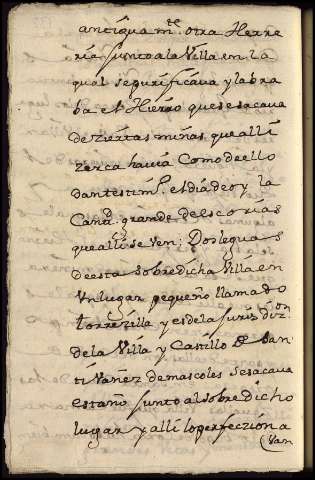 antigua m.te otra Herre
ria junto a la Villa en la
qual se purificava y labra
ba el Hierro que se sacava
de ziertas minas que alli
zerca havia Como de ello
dan testim.o el dia de oy la
Cant.d grande de escorias
que alli se ven; Dos leguas
de esta sobre dicha Villa en
Un lugar pequeño llamado
torrezilla y es de la Jurizdiz.on
de la Villa y Castillo D. San
ti Vañez de mascoles se sacava
estaño junto al sobre dicho
lugar y alli lo perfecziona
Van